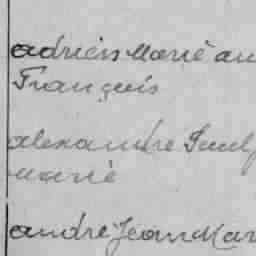 adrien Marie au
François
alexandre
Marie
andré Jean Mar